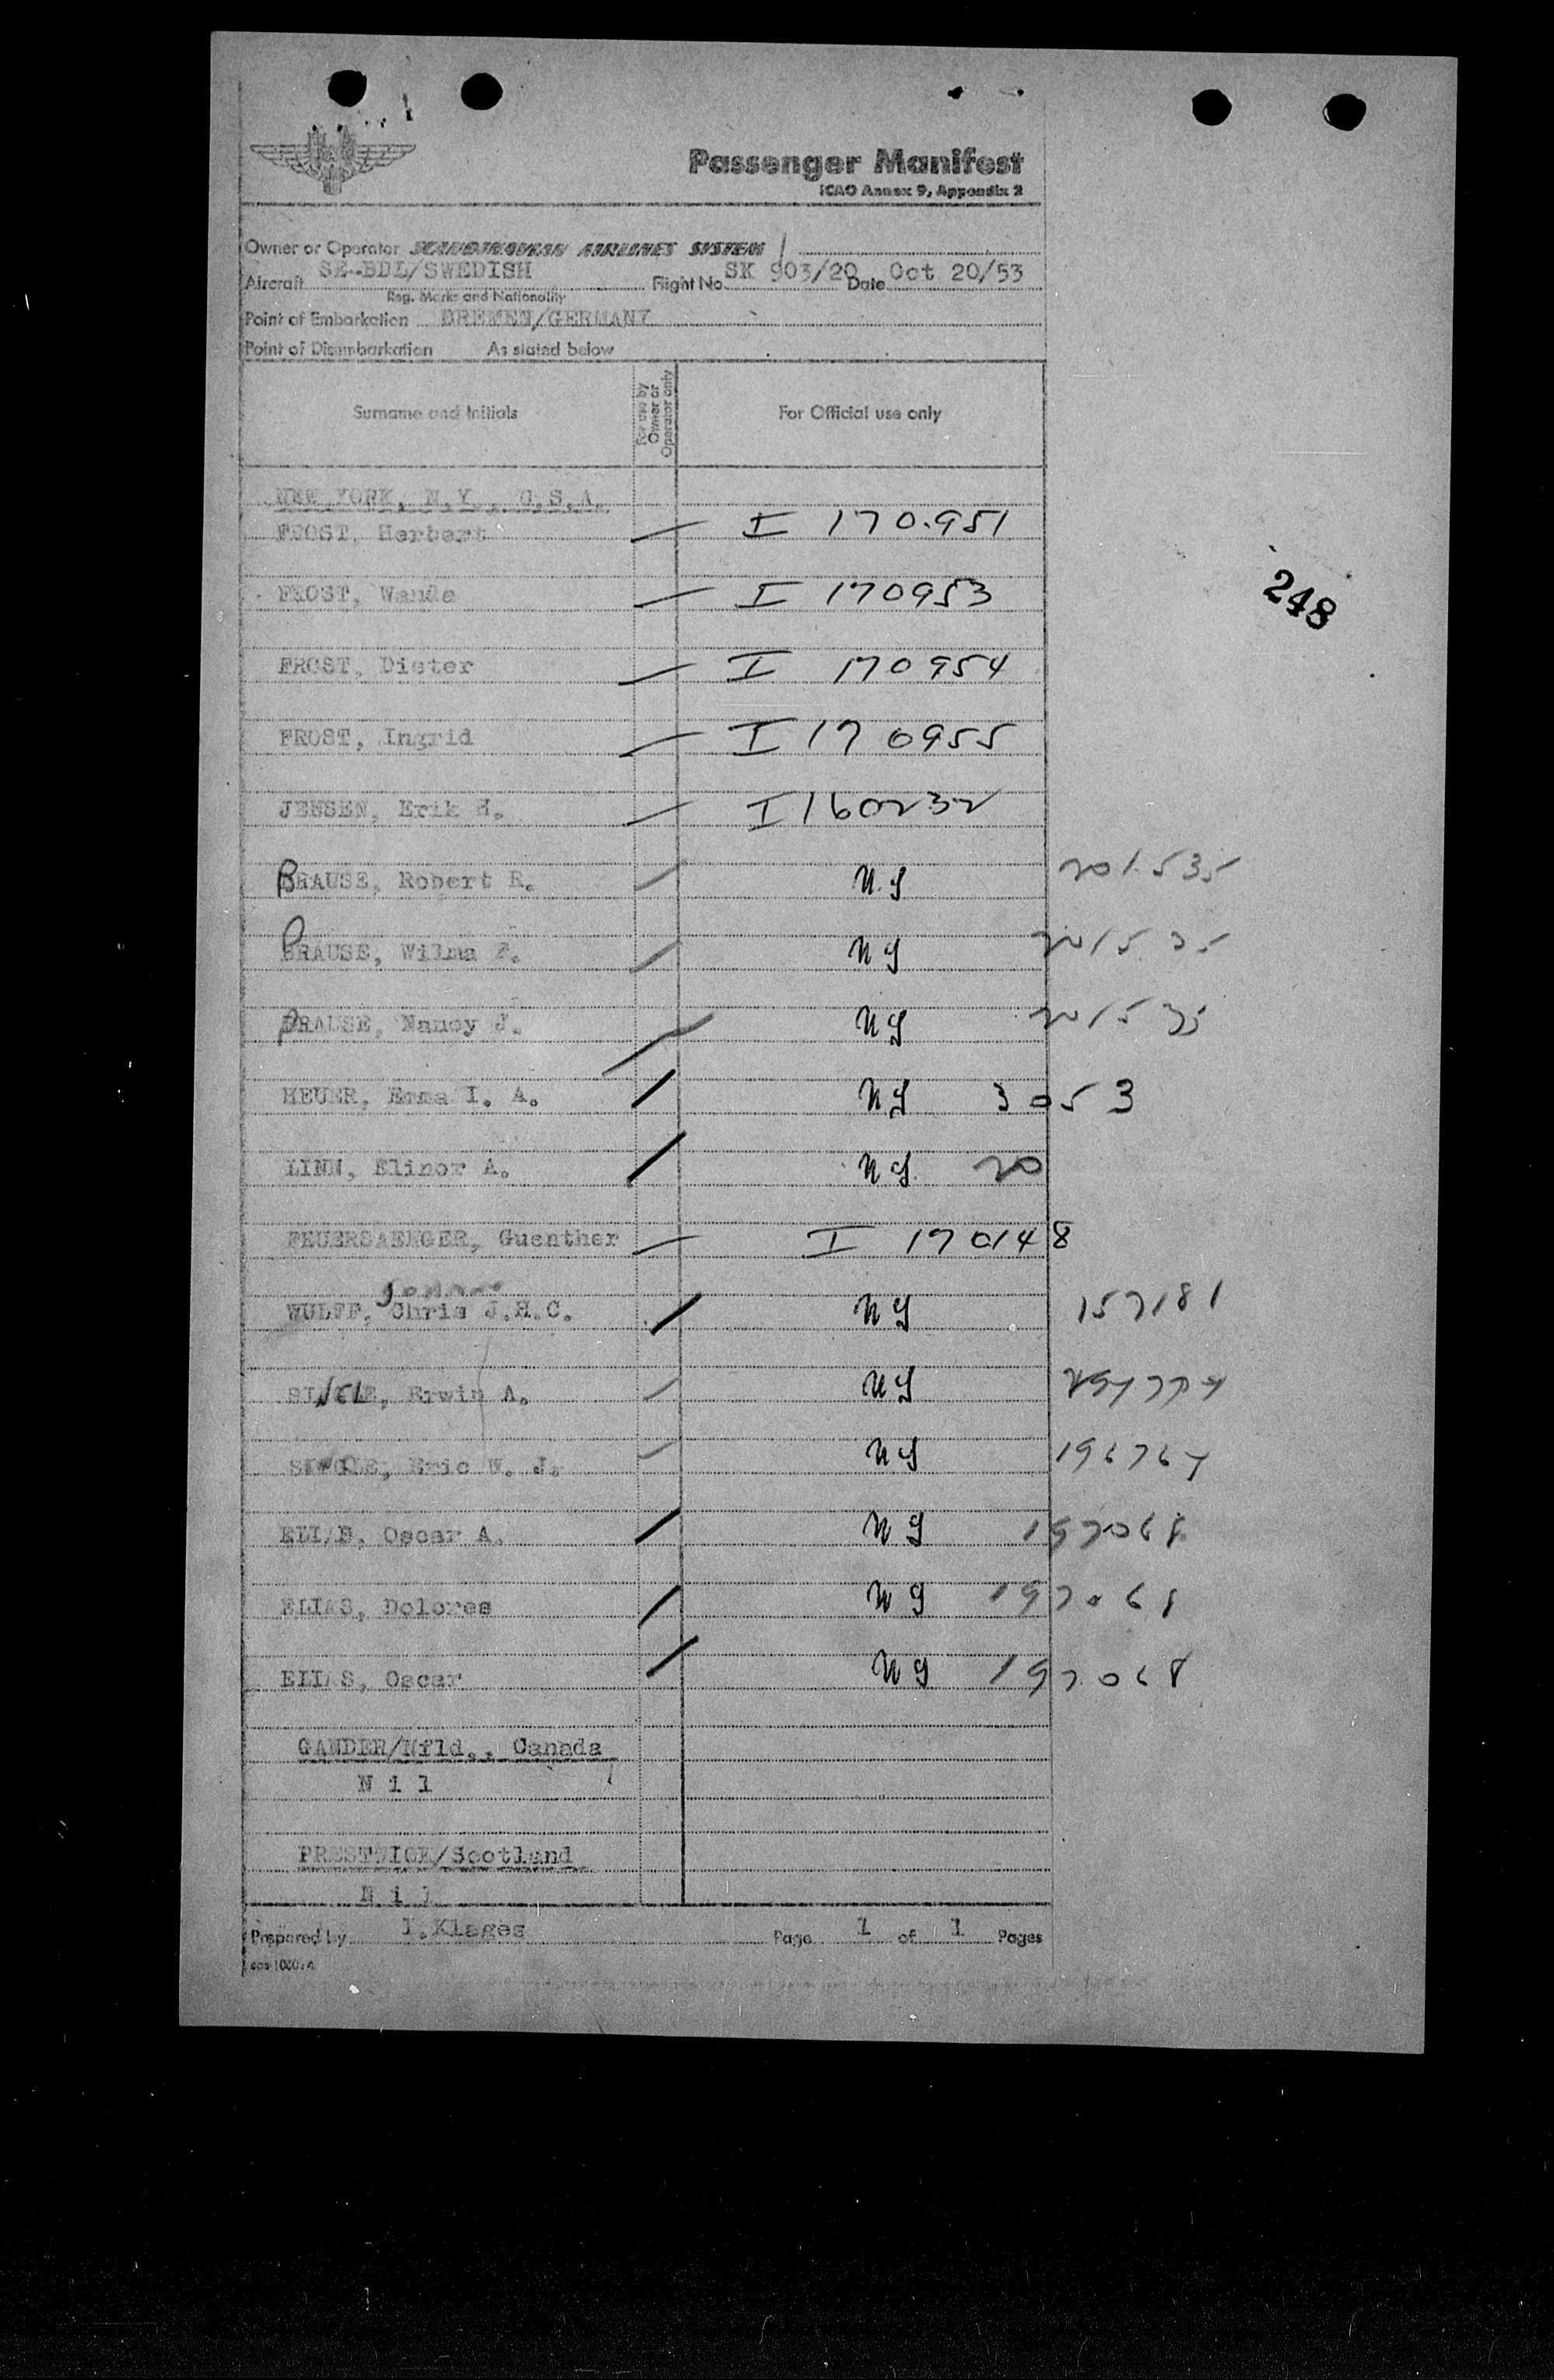 Passenger Manifest
ICAO Annex 9, Appendix 2
Owner or Operator SCANDINAVIAN AIRLINES SYSTEM
Aircraft SE-BDL/SWEDISH Flight No. SK 903/20 Date Oct 20/53
Reg. Marks and Nationality
Point of Embarkation BREMEN/GERMANY
Point of Disembarkation As stated below
Surname and Initials For use by Owner or Operator only For Official use only
NEW YORK, N.Y., U.S.A.
FROST, Herbert I 170.951
FROST, Wanda I 170953
248
FROST, Dieter I 170954
FROST, Ingrid I 170955
JENSEN, Erik H. I 160232
BRAUSE, Robert R. U.S 201535
BRAUSE, Wilma US 201535
BRAUSE, Nancy J. US 201535
HEUER, Erma I. A. US 3053
LINN, Elinor A. US 20
FEUERSAENGER, Guenther I 170148
WULFF, Chris J.H.C. US 157181
Erwin A. US
Eric W. J. US 196767
ELIAS, Oscar A. US 197068
ELIAS, Dolores US 197068
ELIAS, Oscar US 197068
GANDER/Nfld., Canada
N i l
PRESTWICK/Scotland
N i l
Prepared by I.Klages Page 1 of 1 Pages